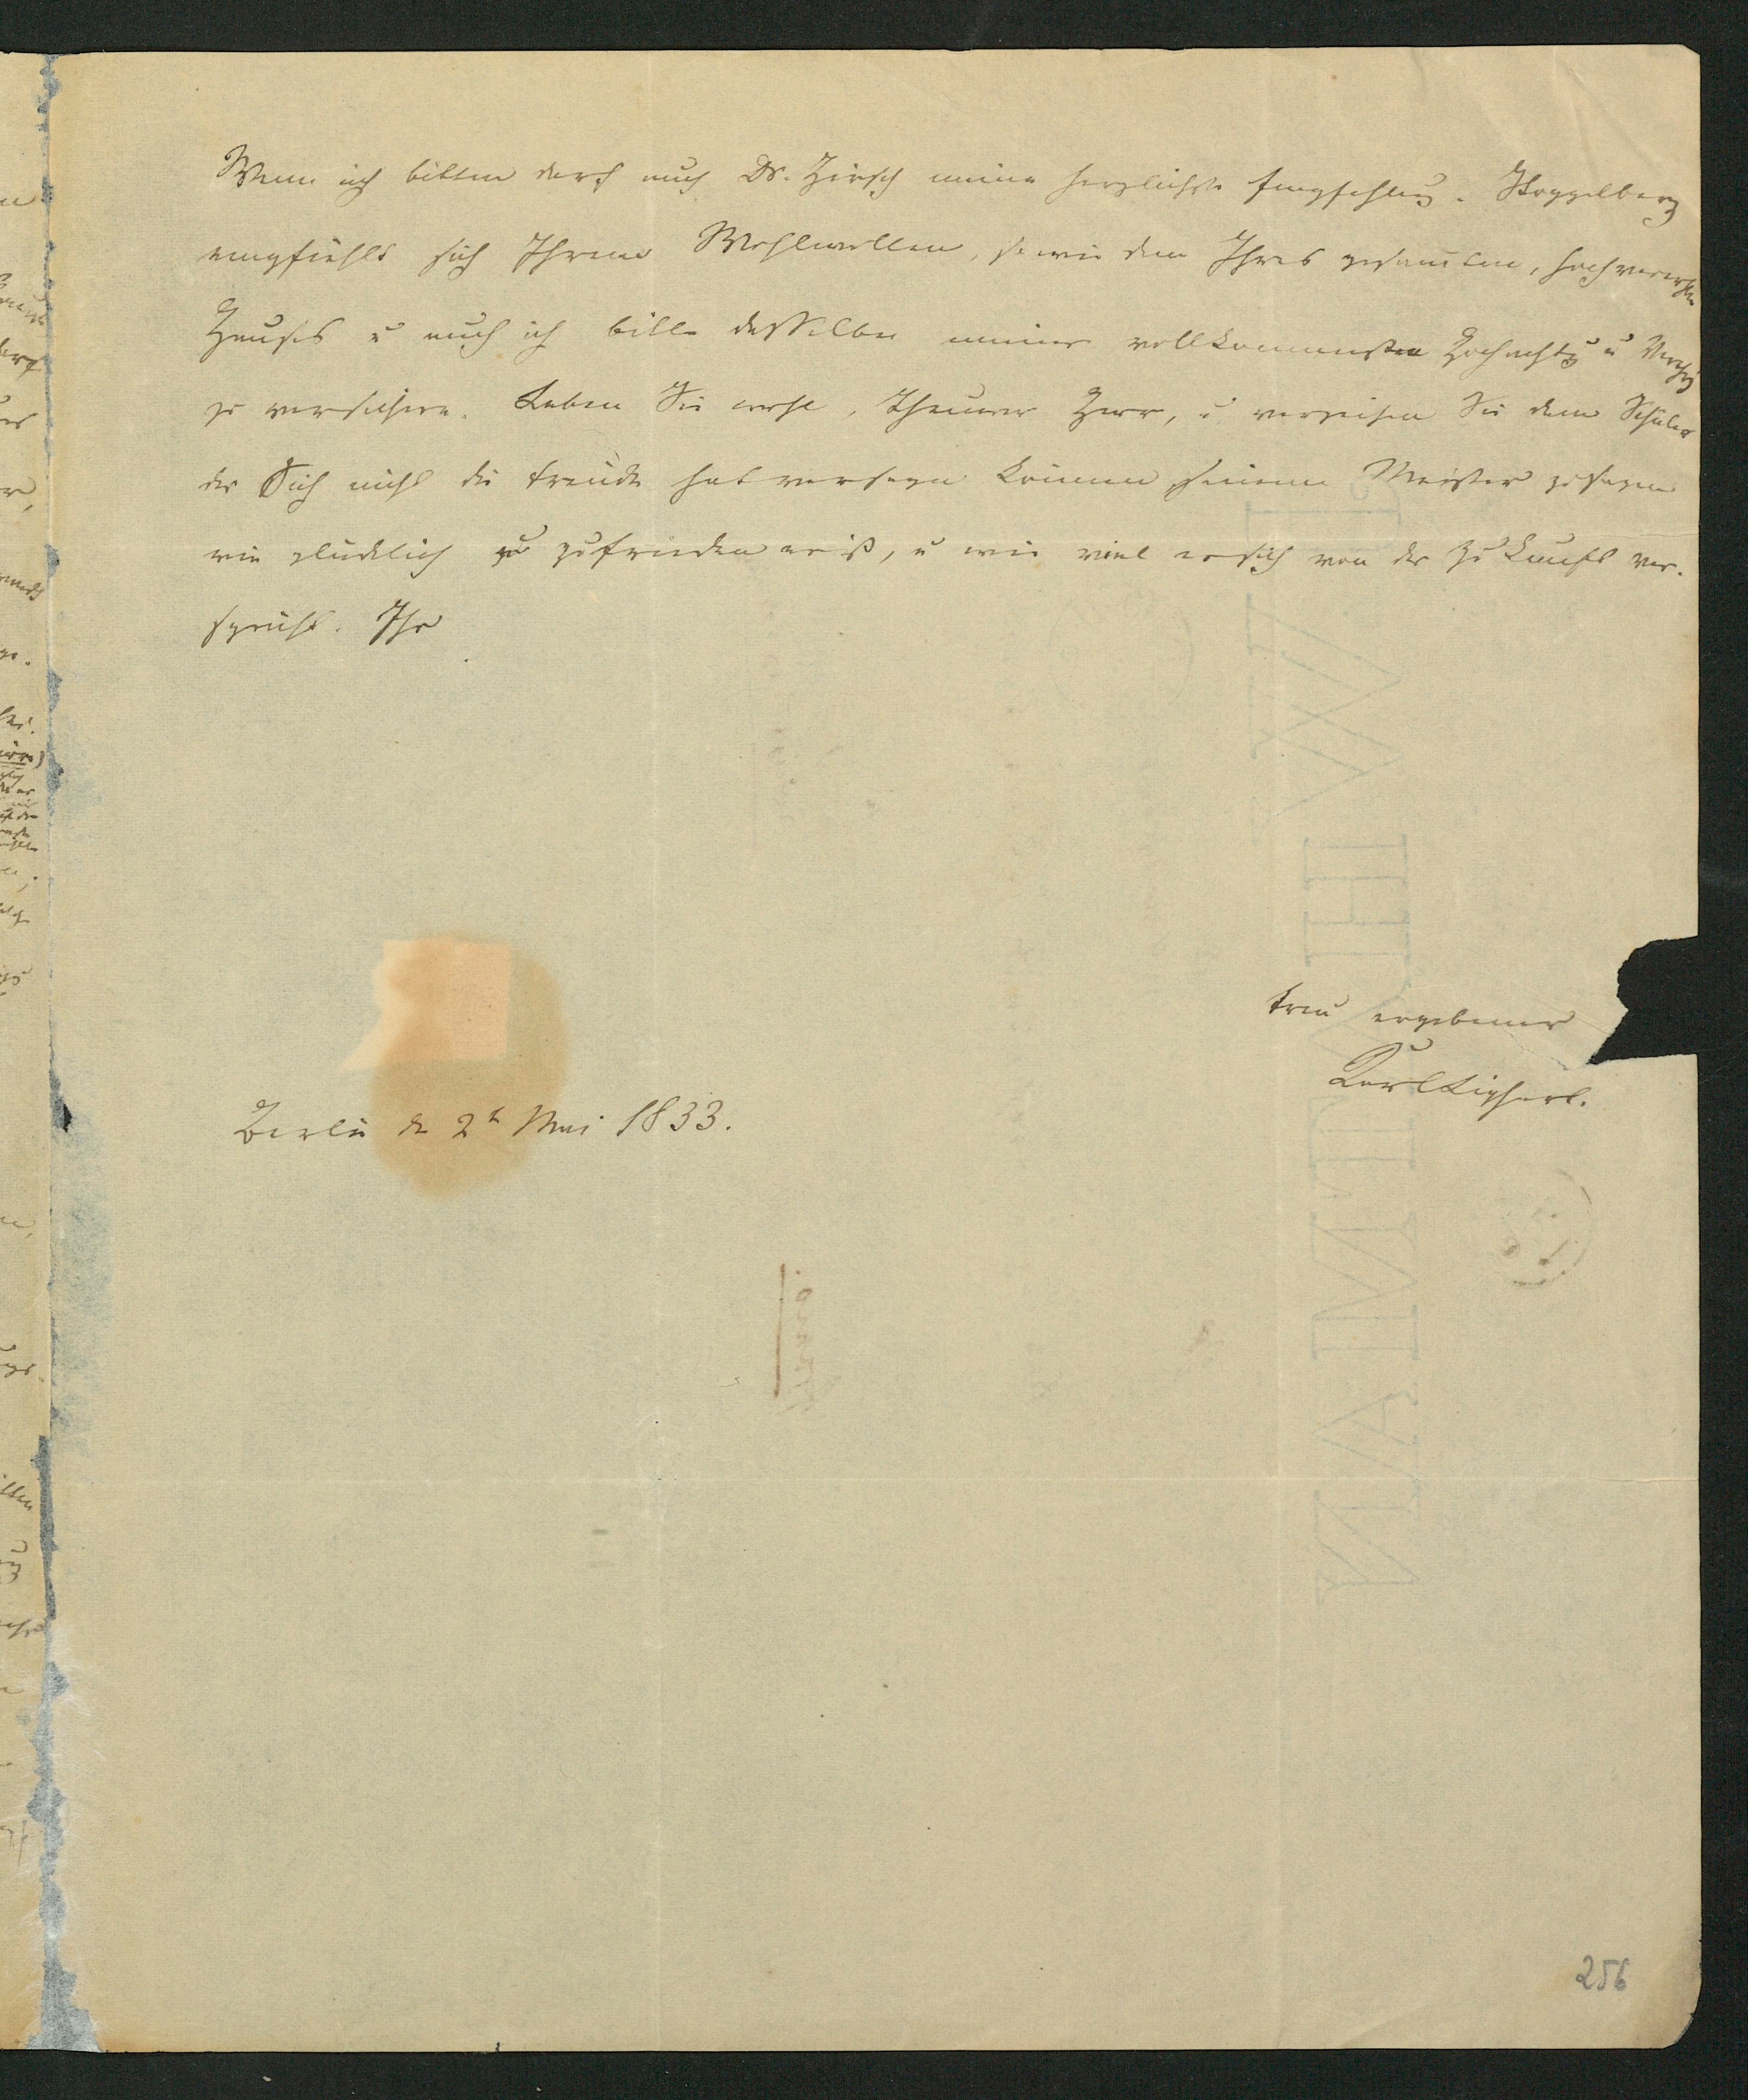 Wenn ich bitten darf auch Dr. Hirsch meine herzlichste Empfehlung.
empfiehlt sich Ihrem Wohlwollen, so wie dem Ihres gesammten, hochverehrten
Hauses u auch ich bitte dasselbe meiner vollkommensten Hochachtg u Verehrg
zu versichern. Leben Sie wohl, Theurer Herr, u verzeihen Sie dem Schüler
der Sich nicht die Freude hat versagen können seinem Meister zu sagen
wie glücklich u zufrieden er ist, u wie viel er sich von der Zukunft ver-
spricht. Ihr
treu ergebener
Karl
Berlin d 2t Mai 1833.
256